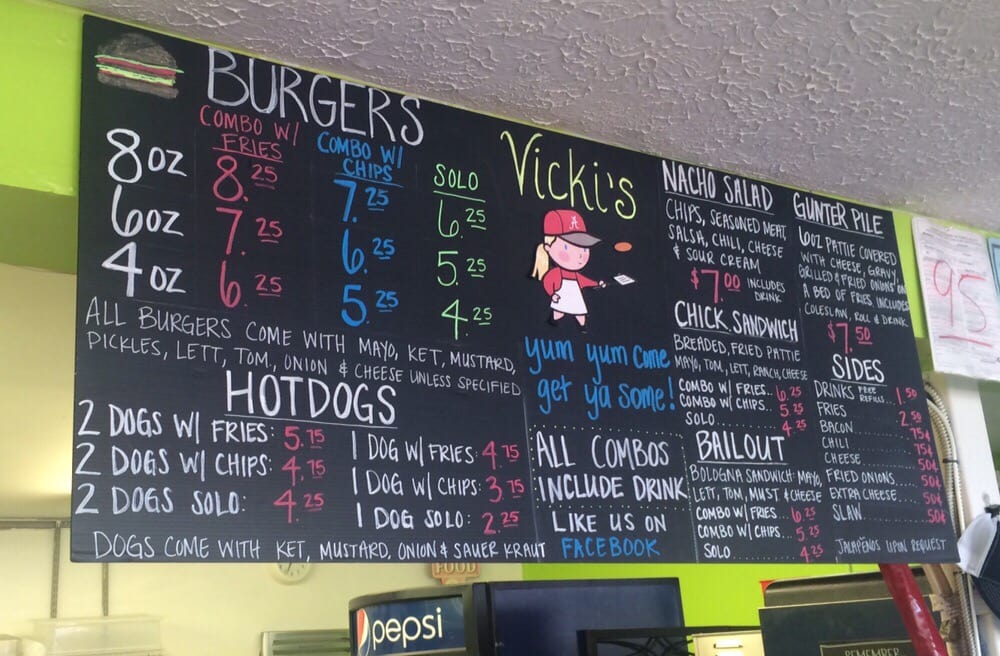 BURGERS
COMBO W/ FRIES
COMBO W/ CHIPS
SOLO
8 OZ 8.25 7.25 6.25
6 OZ 7.25 6.25 5.25
4 OZ 6.25 5.25 4.25
ALL BURGERS COME WITH MAYO, KET, MUSTARD,
PICKLES, LETT, TOM, ONION & CHEESE UNLESS SPECIFIED
HOTDOGS
2 DOGS W/ FRIES: 5.75
2 DOGS W/ CHIPS: 4.75
2 DOGS SOLO: 4.25
1 DOG W/ FRIES: 4.75
1 DOG W/ CHIPS: 3.75
1 DOG SOLO: 2.25
DOGS COME WITH KET, MUSTARD, ONION & SAUER KRAUT
Vicki's
A
yum yum come
get ya some!
ALL COMBOS
INCLUDE DRINK
LIKE US ON
FACEBOOK
NACHO SALAD
CHIPS, SEASONED MEAT
SALSA, CHILI, CHEESE
& SOUR CREAM
$7.00 INCLUDES DRINK
CHICK. SANDWICH
BREADED, FRIED PATTIE
MAYO, TOM, LETT, RANCH, CHEESE
COMBO W/ FRIES... 6.25
COMBO W/ CHIPS... 5.25
SOLO 4.25
BAILOUT
BOLOGNA SANDWICH: MAYO,
LETT, TOM, MUST & CHEESE
COMBO W/ FRIES... 6.25
COMBO W/ CHIPS... 5.25
SOLO 4.25
GUNTER PILE
6OZ PATTIE COVERED
WITH CHEESE, GRAVY,
GRILLED & FRIED ONIONS ON
A BED OF FRIES INCLUDES
COLESLAW, ROLL & DRINK
$7.50
SIDES
DRINKS FREE REFILLS... 1.50
FRIES 2.50
BACON 75¢
CHILI 75¢
CHEESE 50¢
FRIED ONIONS.... 50¢
EXTRA CHEESE.... 50¢
SLAW 50¢
JALAPEÑOS UPON REQUEST
95
FOOD
pepsi
REMEMBER